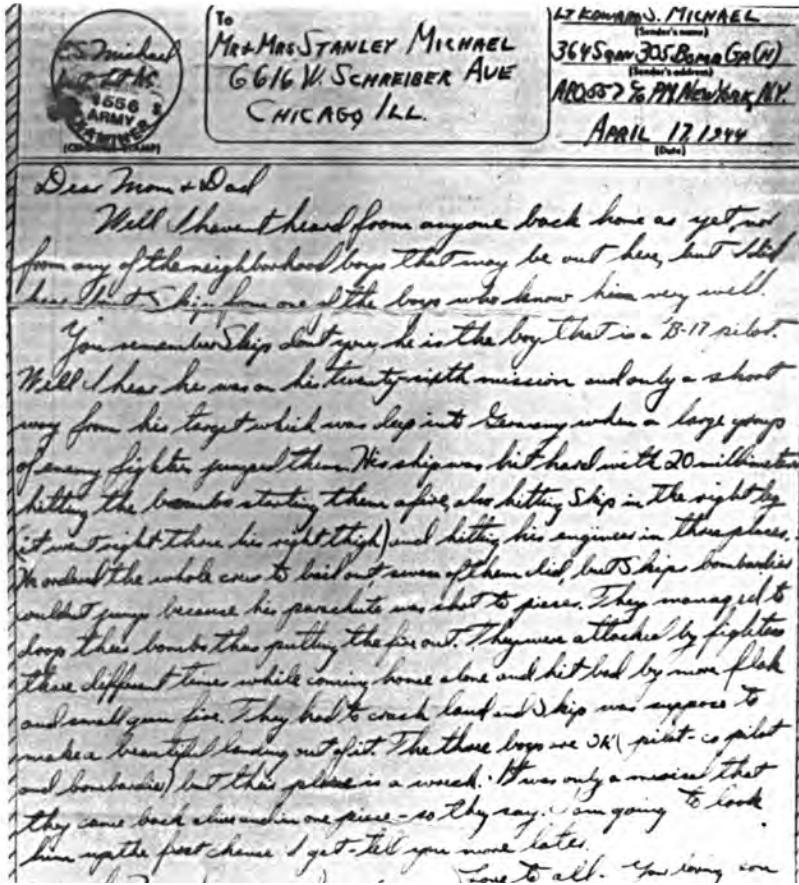 E.S. Michael
1556 S
ARMY
EXAMINER
(CENSOR'S STAMP)
To
MR & MRS STANLEY MICHAEL
6616 W. SCHREIBER AVE
CHICAGO ILL.
LT EDWARD S. MICHAEL
(Sender's name)
364 SQDN 305 BOMB GR (H)
(Sender's address)
APO 557 % PM NEW YORK, N.Y.
APRIL 17, 1944
(Date)
Dear Mom & Dad
Well I havent heard from anyone back home as yet, nor
from any of the neighborhood boys that may be out here, but I did
hear about Skip from one of the boys who know him very well.
You remember Skip dont you, he is the boy that is a B-17 pilot.
Well I hear he was on his twenty-sixth mission and only a short
way from his target which was deep into Germany when a large group
of enemy fighters jumped them. His ship was hit hard with 20 millimeters
hitting the bombs starting them afire, also hitting Skip in the right leg
(it went right thru his right thigh) and hitting his engineer in three places.
He ordered the whole crew to bail out, seven of them did, but Skips bombardier
wouldnt jump because his parachute was shot to pieces. They managed to
drop their bombs thus putting the fire out. They were attacked by fighters
three different times while coming home alone and hit bad by more flak
and small gun fire. They had to crash land and Skip was suppose to
make a beautiful landing out of it. The three boys are OK (pilot - co pilot
and bombardier) but their plane is a wreck. It was only a miricle that
they came back alive and in one piece - so they say. I am going to look
him up the first chance I get - tell you more later.
Love to all - Your loving son